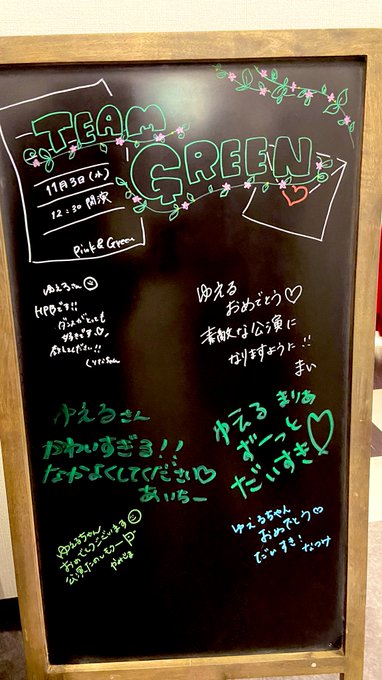 TEAM
GREEN
11月3日(水)
12:30 開演
Pink & Green
ゆえるさん
HPBです!!
ダンスがとっても
好きです♡
してください!!
くりたちゃん
ゆえる
おめでとう♡
素敵な公演に
なりますように!!
まい
ゆえるさん
かわいすぎる!!
なかよくしてください♡
あいちー
ゆえる まりあ
ずーっと
だいすき♡
ゆえるちゃん
おめでとうございます
公演たのしもうーp
ゆえるちゃん
おめでとう♡
だいすき! なつけ